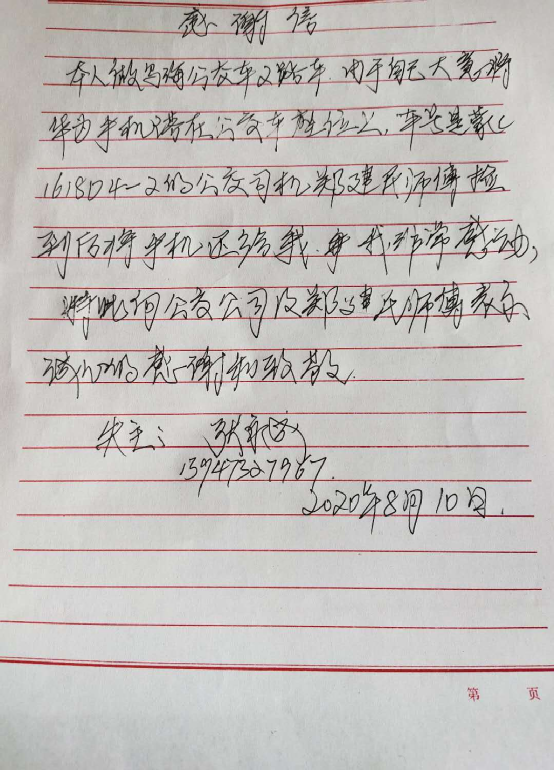 感谢信
本人做乌海公交车2路车,由于自己大意将
华为手机丢在公交车座位上,车号是蒙C
161804-2的公交司机郑建民师傅捡
到后将手机还给我,我非常感动,
特此向公交公司及郑建民师傅表示
诚们的感谢和致敬.
失主:张
2020年8月10日.
第 页